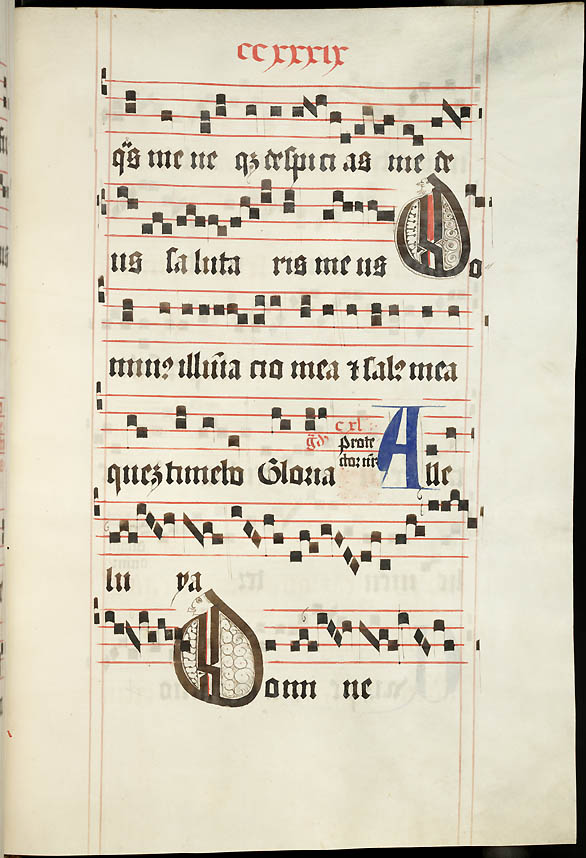 CCXXXIX
q̄s me ne qȝ despici as me de
us saluta ris me us Do
minꝰ illūia cio mea ⁊ salꝰ mea
queȝ timebo Gloria
cxl
gͣdͣ
prote
ctor nr̄
Alle
lu ya
Domi ne